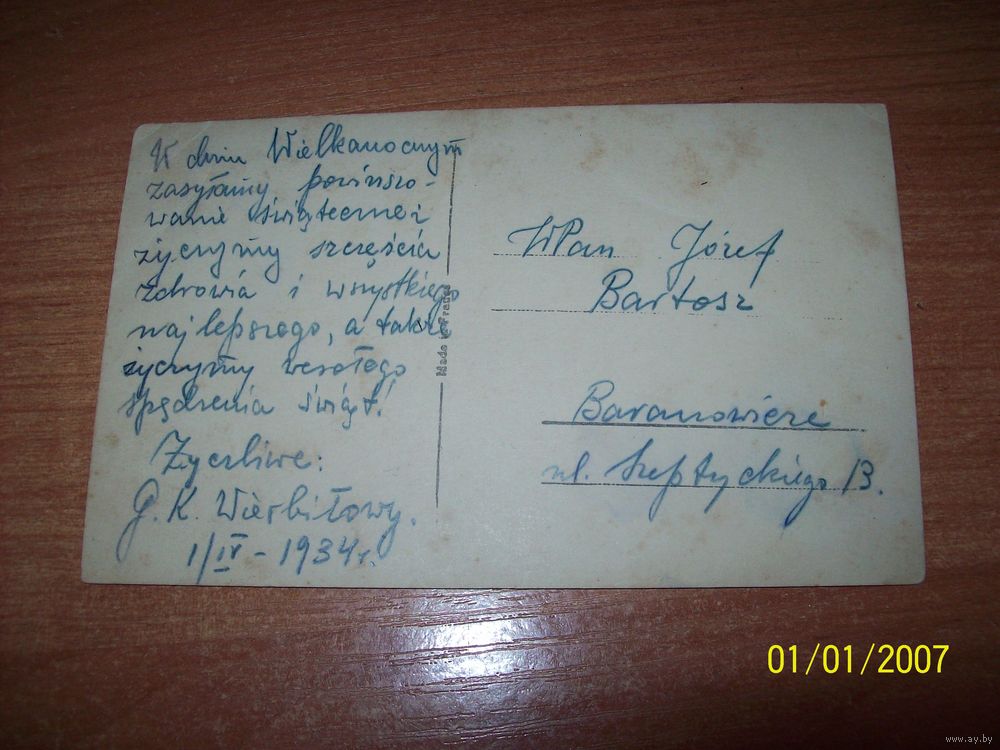 W dniu Wielkanocnym
zasyłamy powinszo-
wanie świąteczne i
życzymy szczęścia
zdrowia i wszystkiego
najlepszego, a także
życzymy wesołego
spędzenia świąt!
Życzliwe:
G. K. Wierbiłowy.
1/IV - 1934 r.
Made in France
WPan Józef
Bartosz
Baranowicze
ul. Szeptyckiego 13.
01/01/2007
www.ay.by